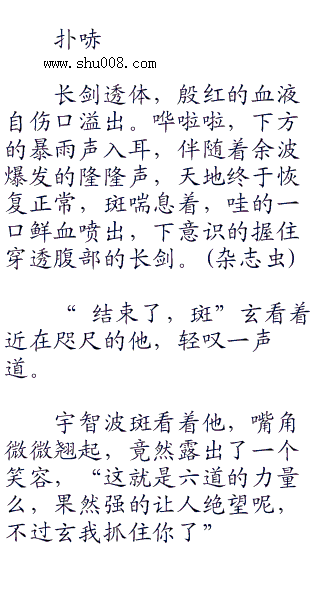 扑哧
www.shu008.com
长剑透体，殷红的血液
自伤口溢出。哗啦啦，下方
的暴雨声入耳，伴随着余波
爆发的隆隆声，天地终于恢
复正常，斑喘息着，哇的一
口鲜血喷出，下意识的握住
穿透腹部的长剑。(杂志虫)
“ 结束了，斑”玄看着
近在咫尺的他，轻叹一声
道。
宇智波斑看着他，嘴角
微微翘起，竟然露出了一个
笑容，“这就是六道的力量
么，果然强的让人绝望呢，
不过玄我抓住你了”